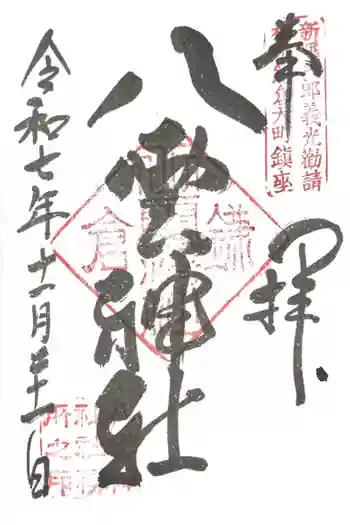 新羅三郎義光勧請
倉大町鎮座
奉拝
八雲神社
鎌
倉
令和七年十一月二十一日
社務
所之印